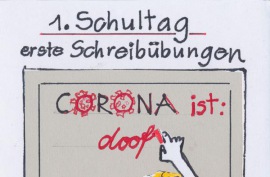 1. Schultag
erste Schreibübungen
CORONA ist:
doof